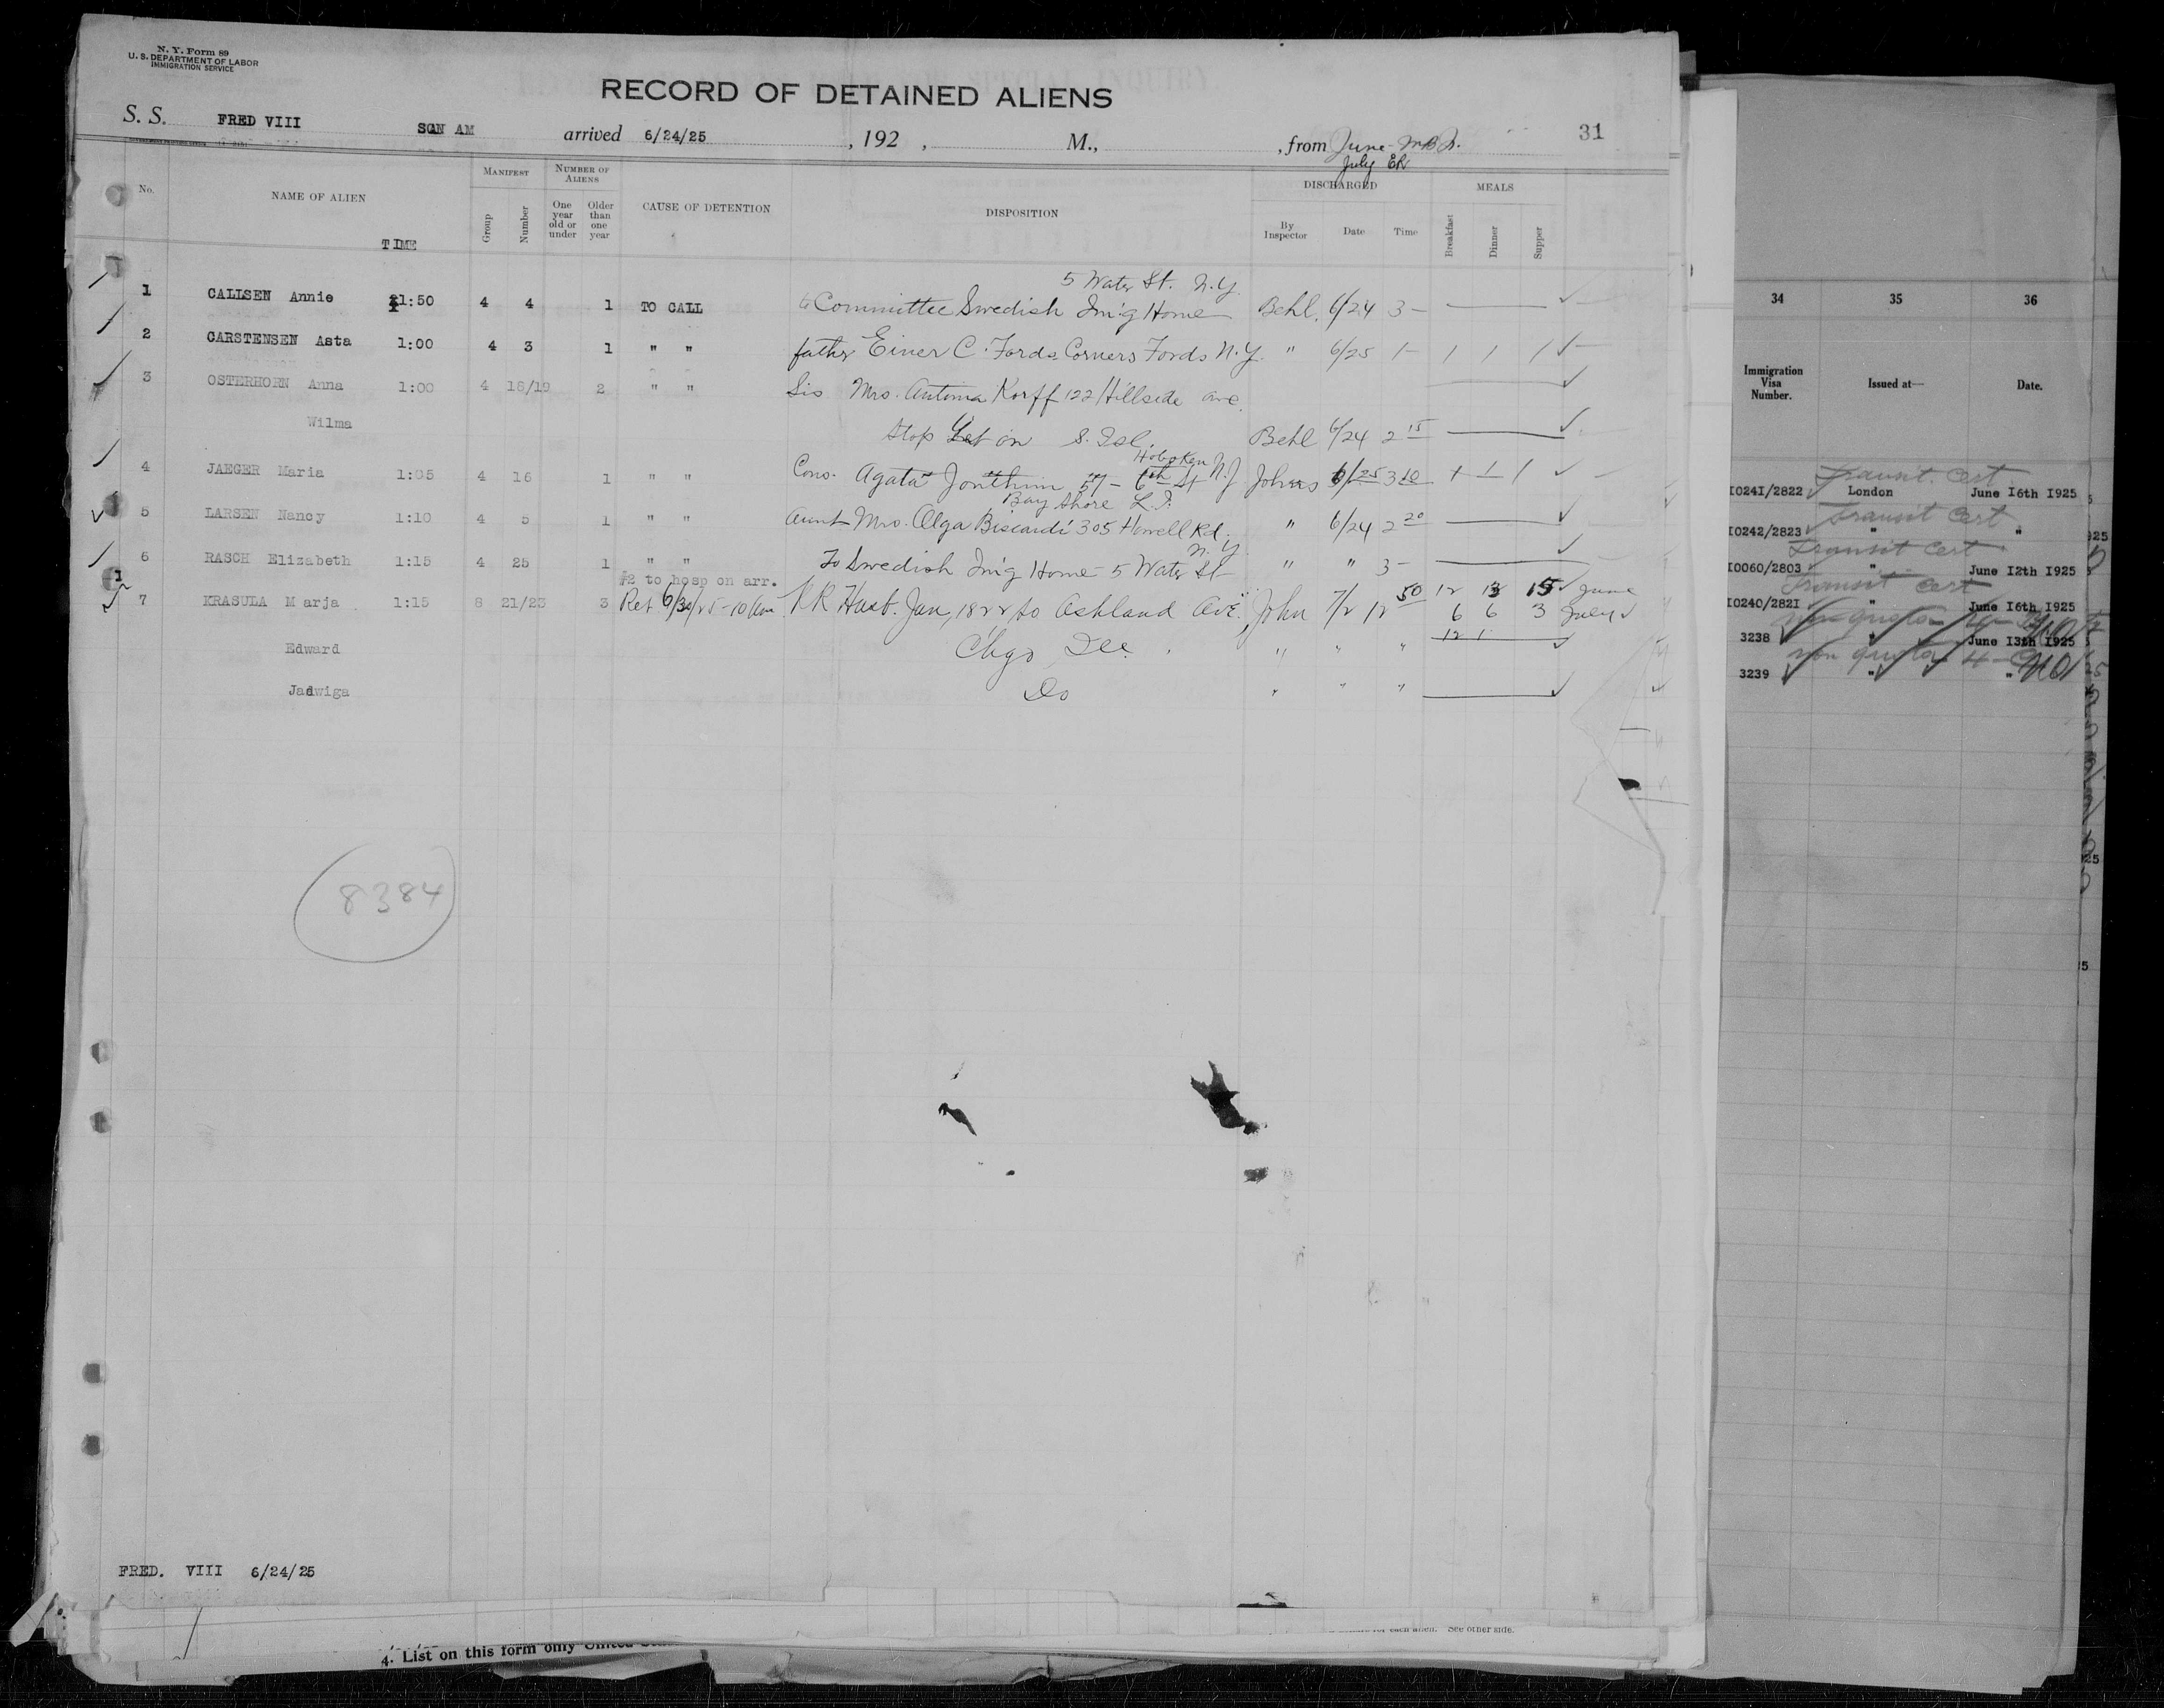 N. Y. Form 89
U. S. DEPARTMENT OF LABOR
IMMIGRATION SERVICE
RECORD OF DETAINED ALIENS
31
S. S. FRED VIII SCN AM arrived 6/24/25, 192 , M., , from June
July ER
No. NAME OF ALIEN TIME MANIFEST Group Number NUMBER OF ALIENS One year old or under Older than one year CAUSE OF DETENTION DISPOSITION DISCHARGED By Inspector Date Time MEALS Breakfast Dinner Supper
5 Water St. N.Y.
1 CALLSEN Annie 11:50 4 4 1 TO CALL to Committee Swedish Im'g Home Behl. 6/24 3 –
2 CARSTENSEN Asta 1:00 4 3 1 " " father Einer C. Fords Corners Fords N.Y. " 6/25 1 – 1 1 1
3 OSTERHORN Anna 1:00 4 18/19 2 " " Sis Mrs. Antonia Korff 122 Hillside ave.
Wilma Stap S. Isl. Behl 6/24 2 15
Hoboken N.J
4 JAEGER Maria 1:05 4 16 1 " " Agata 57 – 6th St Johns 6/25 3 10 1 1 1
Bay Shore L.I.
5 LARSEN Nancy 1:10 4 5 1 " " Aunt Mrs. Olga Biscardi 305 Howell Rd. " 6/24 2 20
N.Y.
6 RASCH Elizabeth 1:15 4 25 1 " " To Swedish Im'g Home – 5 Water St " " 3 –
#2 to hosp on arr.
7 KRASULA Marja 1:15 8 21/23 3 Ret 6/30/25 – 10 am RR Husb. Jan, 1822 so Ashland Ave. John 7/2 12 50 12 13 15 June
6 6 3 July
12 1
Edward Chgo Ill. " " "
Jadwiga Do " " "
8384
FRED. VIII 6/24/25
4. List on this form only United
for each alien. See other side.
34 35 36
Immigration Visa Number. Issued at— Date.
Transit Cert
I0241/2822 London June I6th I925
Transit Cert
I0242/2823 " "
Transit Cert
I0060/2803 " June I2th I925
Transit Cert
I0240/282I " June I6th I925
non quota
3238 " June I3th I925
non quota
3239 " "